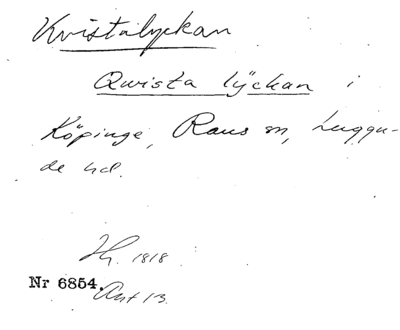 Kvistalyckan
Qwista lÿckan i
Köpinge, Raus sn, Luggu-
de hd.
Hh. 1818
Nr 6854.
Akt 13.